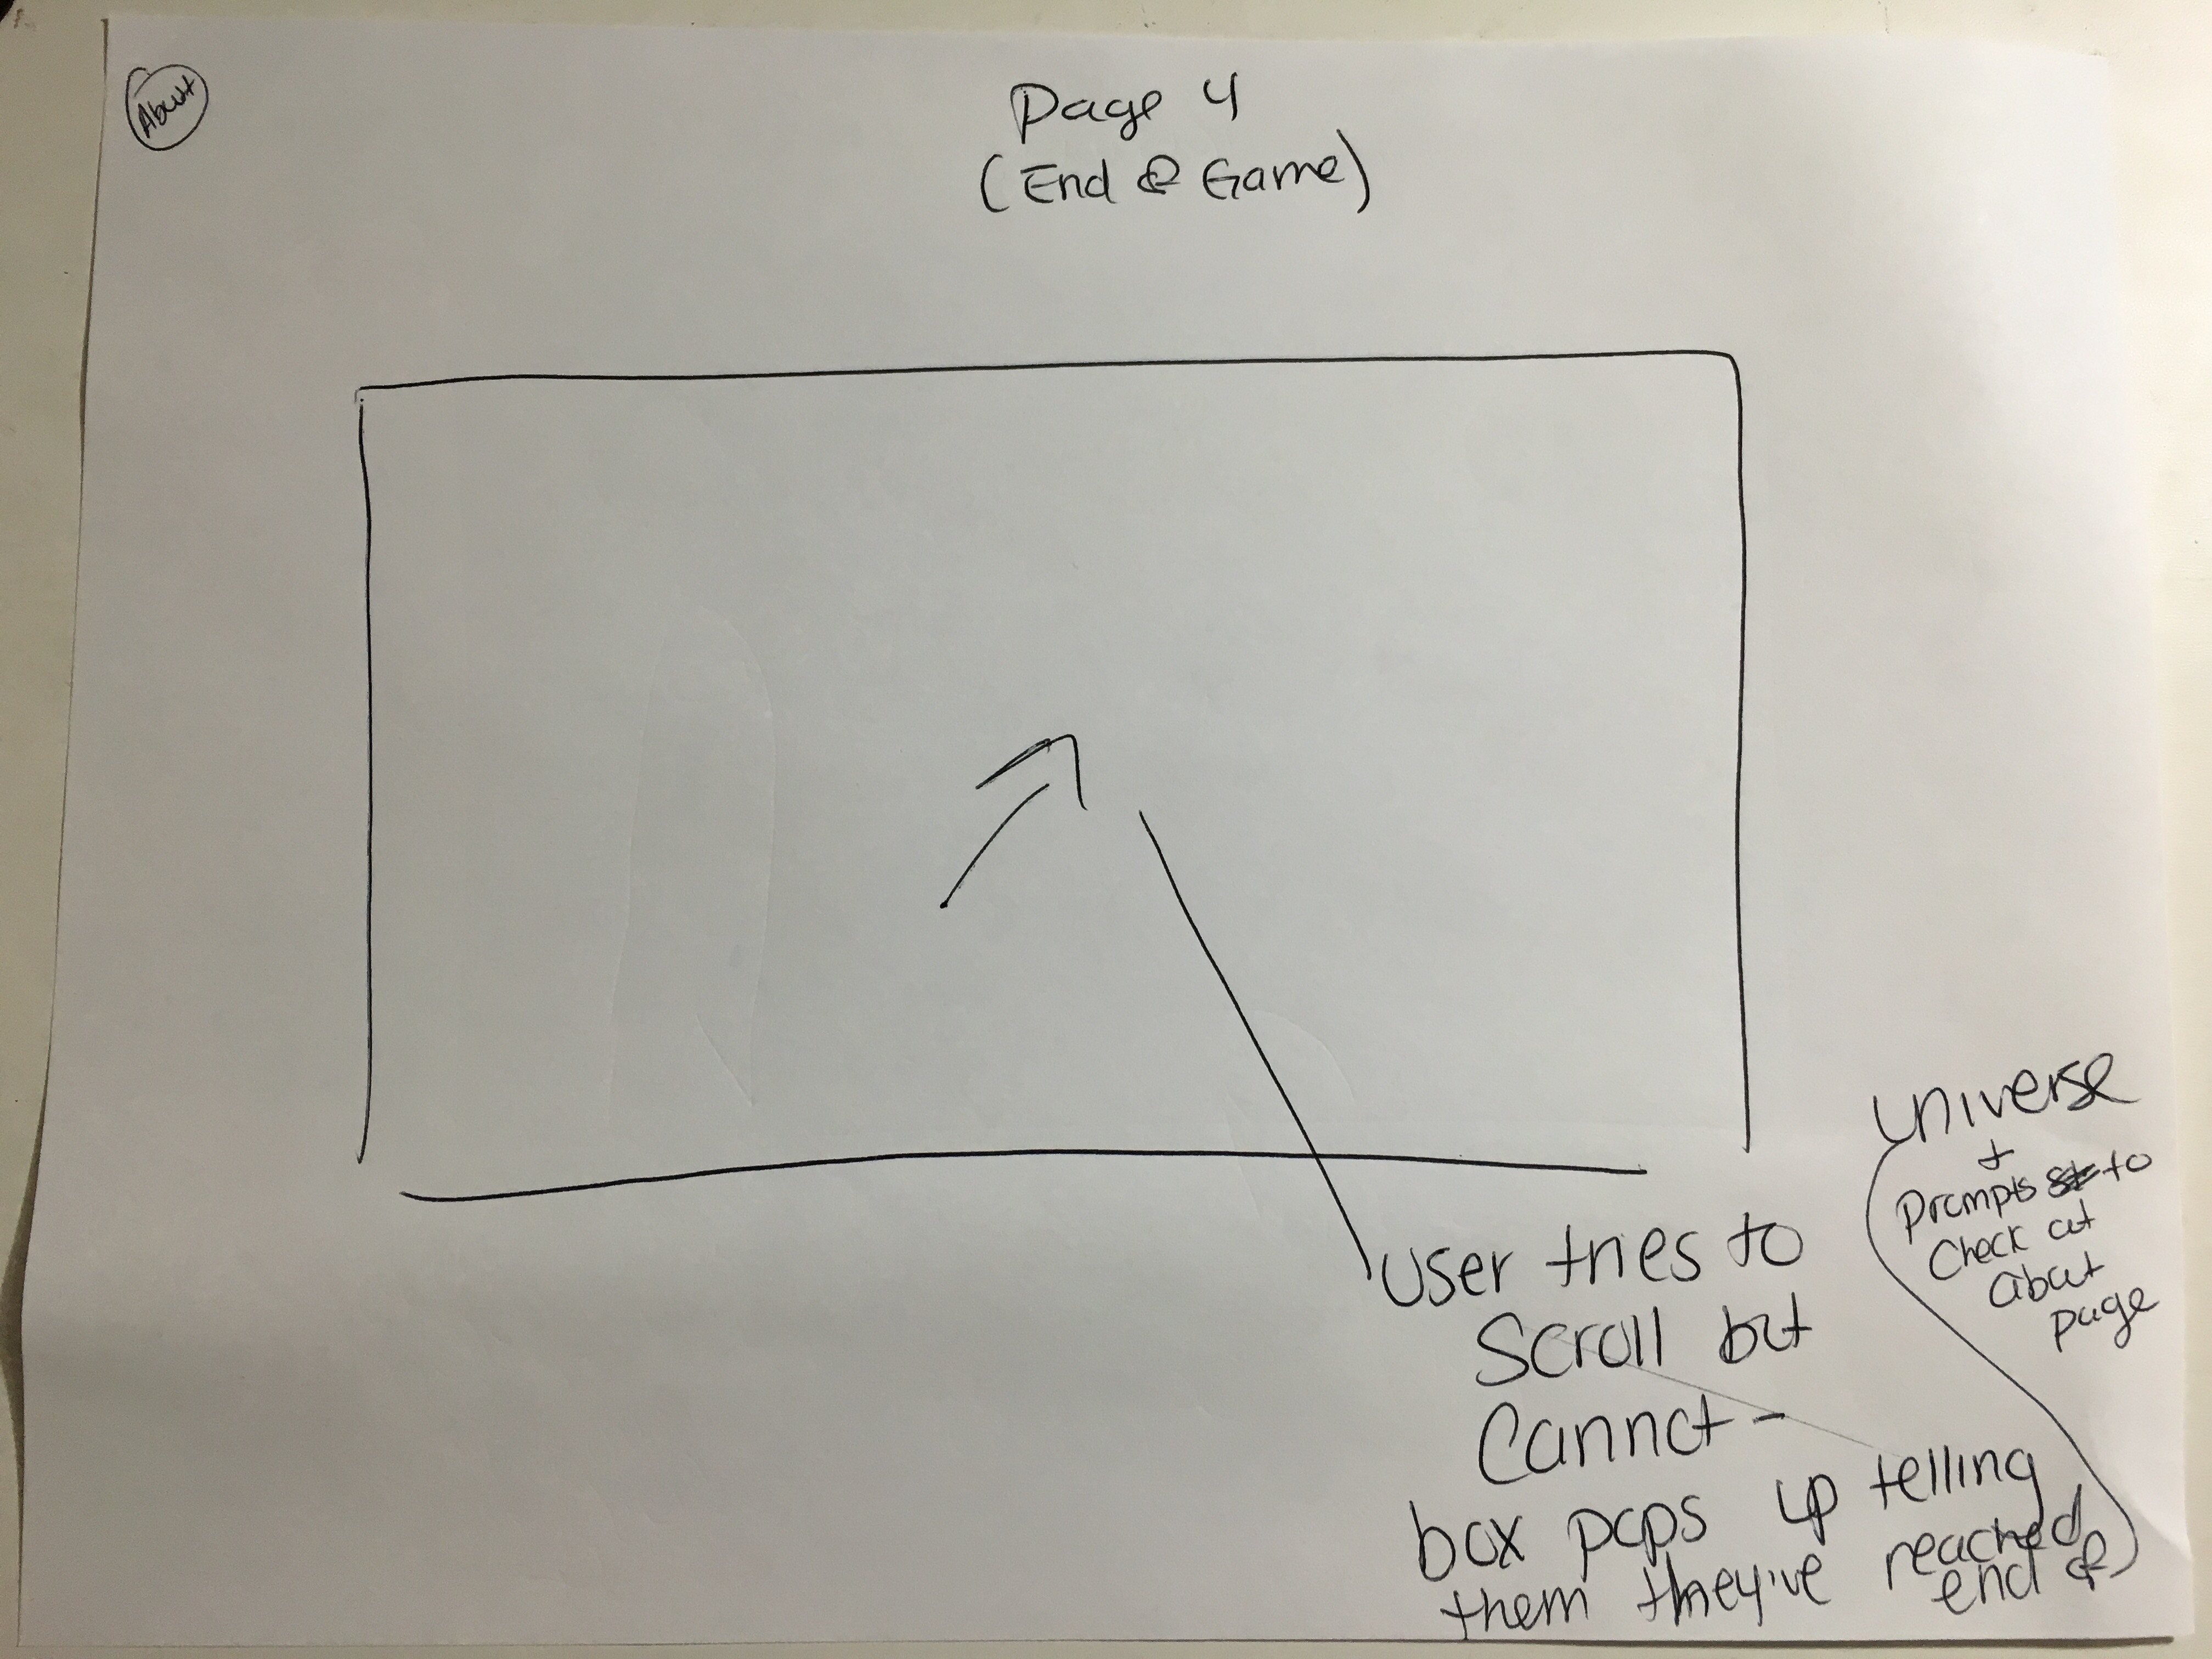 About
Page 4
(End of Game)
user tries to
scroll but
cannot -
box pops up telling
them they've reached
end of
universe
+
prompts to
check out
about
page